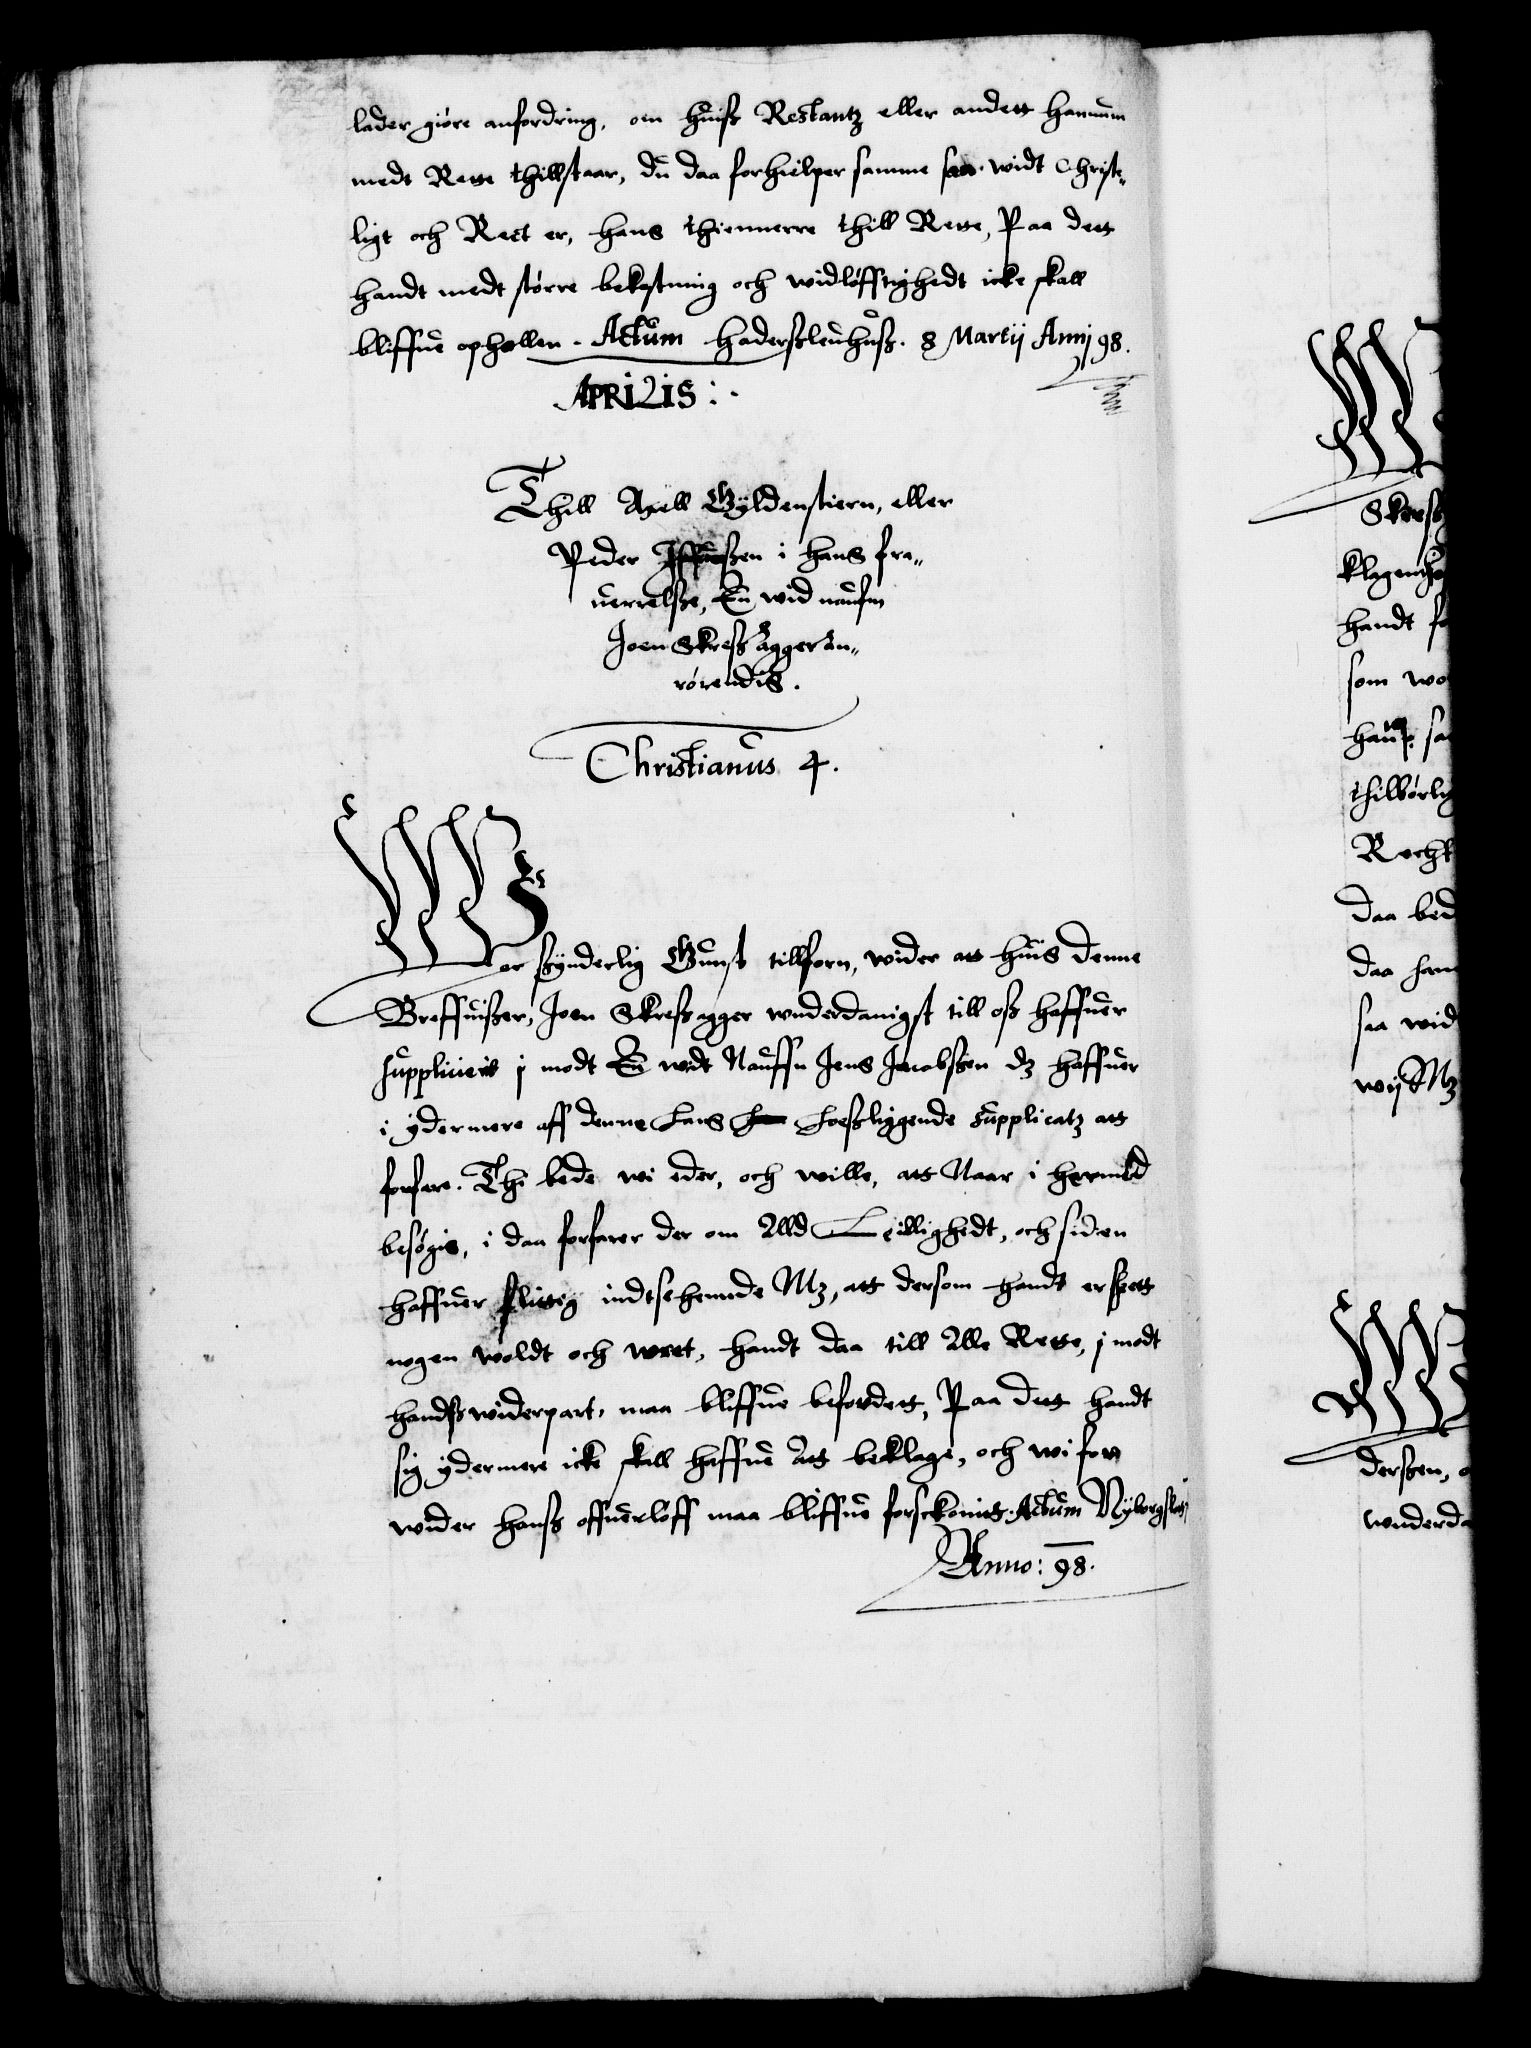 lader giøre anfordring, om huiß Restantz eller andett hannum
medt Rette thillstaar, du daa forhielper samme saa widt Christe„
ligt och Rect er, hans thiennerre thill Rette, Paa dett
handt medt større bekostning och widløfftighedt icke skall
bliffue ophollen. Actum Haderßleuhuß. 8 Martij Anni 98.
APRILIS:
Thill Axell Gyldenstiern, eller
Peder Iffuerßen i hans fra„
uerrelße, En wid naufn
Joen Skreßagger An„
rørendis.
Christianus 4.
Wor ßynderlig Gunst tillforn, wider att huis denne
Breffuißer, Joen Skreßagger wnderdanigst till oß haffuer
supplicerit i modt En widt Nauffn Jens Jacobßen dz haffuer
i ydermere aff denne hans hoeßliggende supplicatz att
forfare. Thi bede wi eder, och wille, att Naar i hermed
besøgis, i daa forfarer der om Alld Leilighedt, och siden
haffuer flittig indtseehennde Mz, att dersom handt er skett
nogen woldt och wret, handt daa till Alle Rette, i modt
handß widerpart, maa bliffue befordett, Paa dett handt
sig ydermere icke skall haffue Att beklage, och wi for
wider hanß offuerløff maa bliffue forskonit. Actum Nyborgslot
Anno: 98.
Skreß
handt
som
thilbørlig
daa
daa
saa wid
wij Mz
derßen,
wnderda